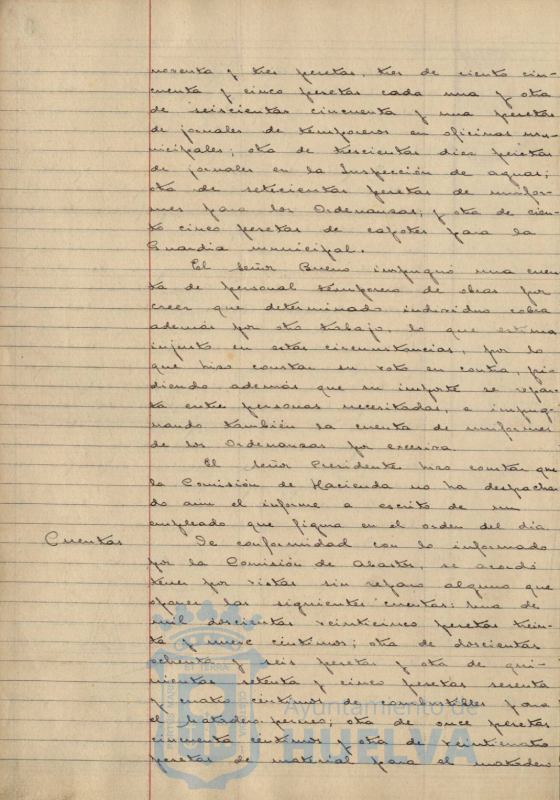 noventa y tres pesetas, tres de ciento cin-
cuenta y cinco pesetas cada una y otra
de seiscientas cincuenta y una pesetas
de jornales de temporeros en oficinas mu-
nicipales; otra de trescientas diez pesetas
de jornales en la Inspección de aguas;
otra de setecientas pesetas de unifor-
mes para los Ordenanzas; y otra de cien-
to cinco pesetas de capotes para la
Guardia municipal.
El Señor Bueno impugnó una cuen
ta de personal temporero de obras por
creer que determinado individuo cobra
además por otro trabajo, lo que estima
injusto en estas circunstancias, por lo
que hizo constar su voto en contra, pi-
diendo además que su importe se repar-
ta entre personas necesitadas, e impug-
nando también la cuenta de uniformes
de los Ordenanzas por excesiva.
El Señor Presidente hizo constar que
la Comisión de Hacienda no ha despacha-
do aun el informe a escrito de un
empleado que figura en el orden del dia
Cuentas De conformidad con lo informado
por la Comisión de Abastos, se acordó
tener por vistas sin reparo alguno que
oponer las siguientes cuentas: una de
mil doscientas veinticinco pesetas trein-
ta y nueve céntimos; otra de doscientas
ochenta y seis pesetas y otra de qui-
nientas setenta y cinco pesetas sesenta
y cuatro céntimos de combustibles para
el matadero; otra de once pesetas
cincuenta céntimos y otra de veinticuatro
pesetas de material para el matadero
Ayuntamiento de
HUELVA